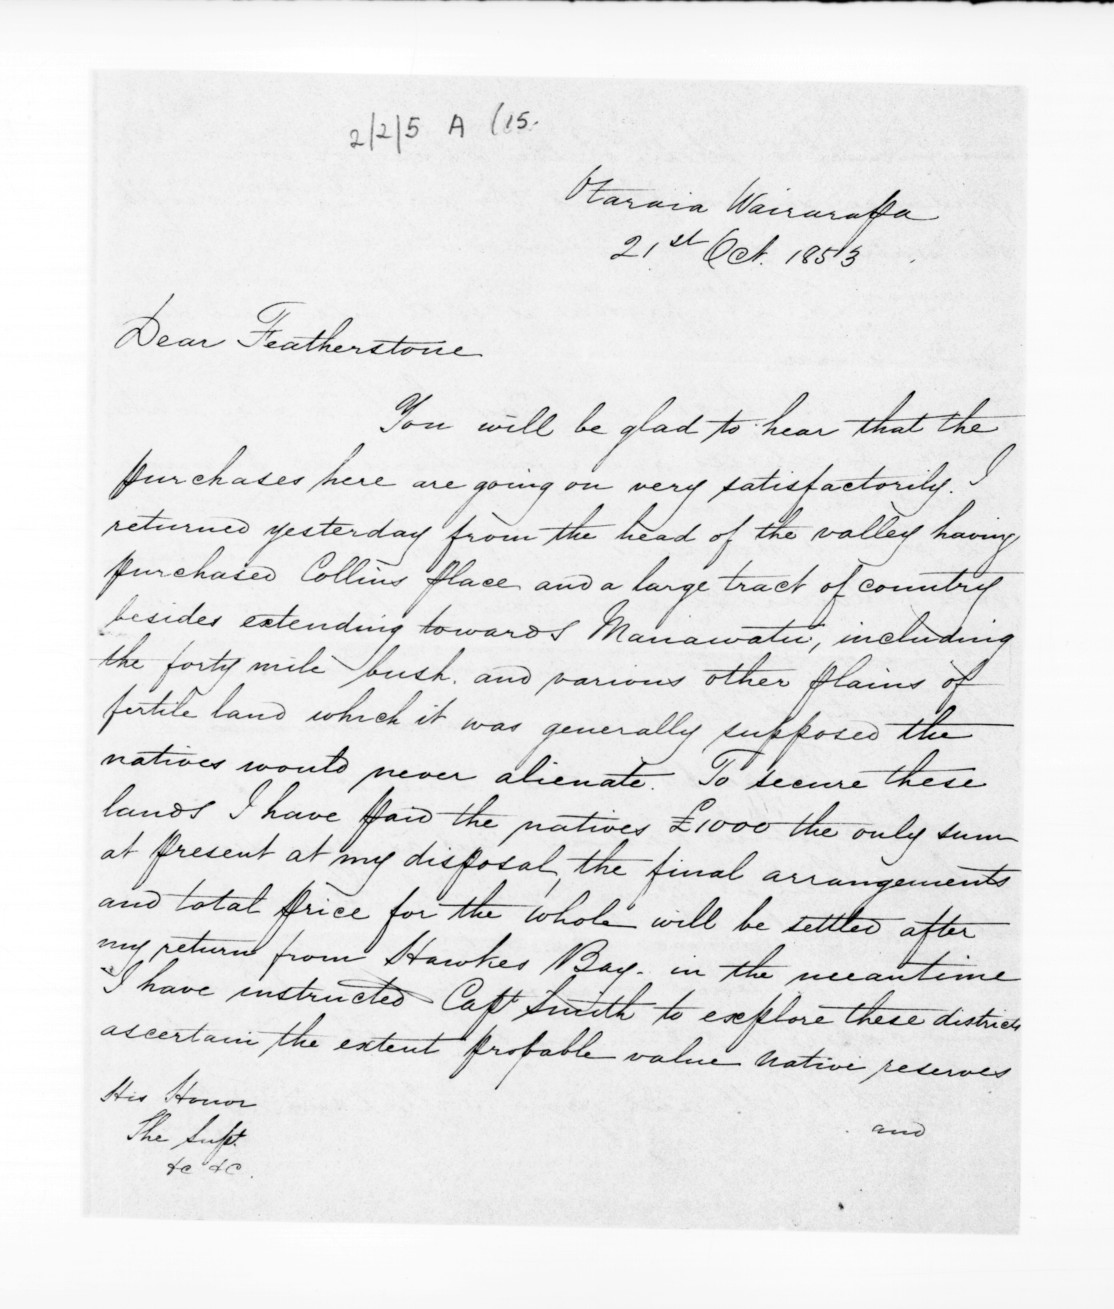 2/2/5 A (15.
Otaraia Wairarapa
21st Oct. 1853
Dear Featherstone
You will be glad to hear that the
purchases here are going on very satisfactorily. I
returned yesterday from the head of the valley having
purchased Collins place and a large tract of country
besides extending towards Manawatu, including
the forty mile bush. and various other plains of
fertile land which it was generally supposed the
natives would never alienate. To secure these
lands I have paid the natives £1000 the only sum
at present at my disposal, the final arrangements
and total price for the whole will be settled after
my return from Hawkes Bay. in the meantime
I have instructed Capt Smith to explore these districts
ascertain the extent probable value native reserves
His Honor
The Supt.
&c &c.
and